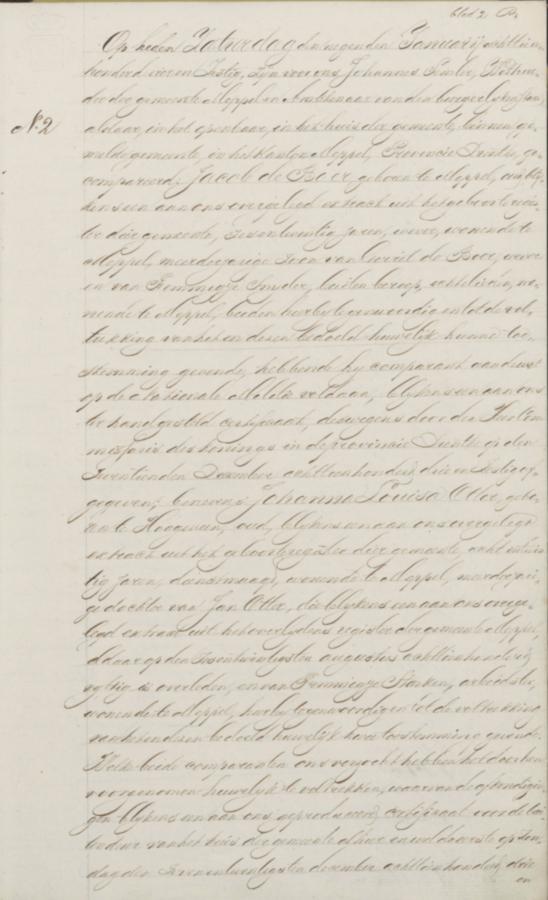 blad 2.
Op heden Zaturdag den negenden Januarij achttien
honderd vier en Sestig, zijn voor ons Johannes Wethou
der der gemeente Meppel en Ambtenaar van den burgerlijken stand
aldaar, in het openbaar, in het huis der gemeente, binnen ge
melde gemeente, in het Kanton Meppel, Provincie Drenthe, ge
N.º 2
compareerd: Jacob de Boer, geboren te Meppel, oud blij
kens een aan ons overgelegd extract uit het geboorte regis
ter dier gemeente, zes en twintig jaren, wever, wonende te
Meppel, meerderjarige zoon van de Boer, wever
en van Femmigje Snijder, buiten beroep, echtelieden, wo
nende te Meppel, beiden hierbij tegenwoordig en tot de vol
trekking van het en dezen bedoeld huwelijk hunne toe
stemming gevende, hebbende hij comparant aan dienst
op de Nationale Militie voldaan, blijkens een aan ons
ter hand gesteld certificaat, deswegens door den Heer Com
missaris des Konings in de provincie Drenthe op den
December achttienhonderd drie en Sestig af
gegeven; benevens Johanna Louisa Otter, gebo
ren te Hoogeveen, oud, blijkens een aan ons overgelegd
extract uit het geboorteregister dier gemeente, acht en twin
tig jaren, dienstmaagd, wonende te Meppel, meerderjari
ge dochter van Jan Otter, die blijkens een aan ons overge
legd extract uit het overlijdens register der gemeente Meppel,
aldaar op den augustus achttienhonderd
vijftig is overleden, en van Femmigje Stonken, arbeidster,
wonende te Meppel, hierbij tegenwoordig en tot de voltrekking
van het en dezen bedoeld huwelijk hare toestemming gevende.
Welke beide comparanten ons verzocht hebben het door hen
voorgenomen huwelijk te voltrekken, waarvan de afkondigin
gen blijkens een aan ons geproduceerd certificaat voor de
deur van het huis der gemeente alhier en wel de eerste op Zon
dag den zeven en twintigsten december achttienhonderd drie
en